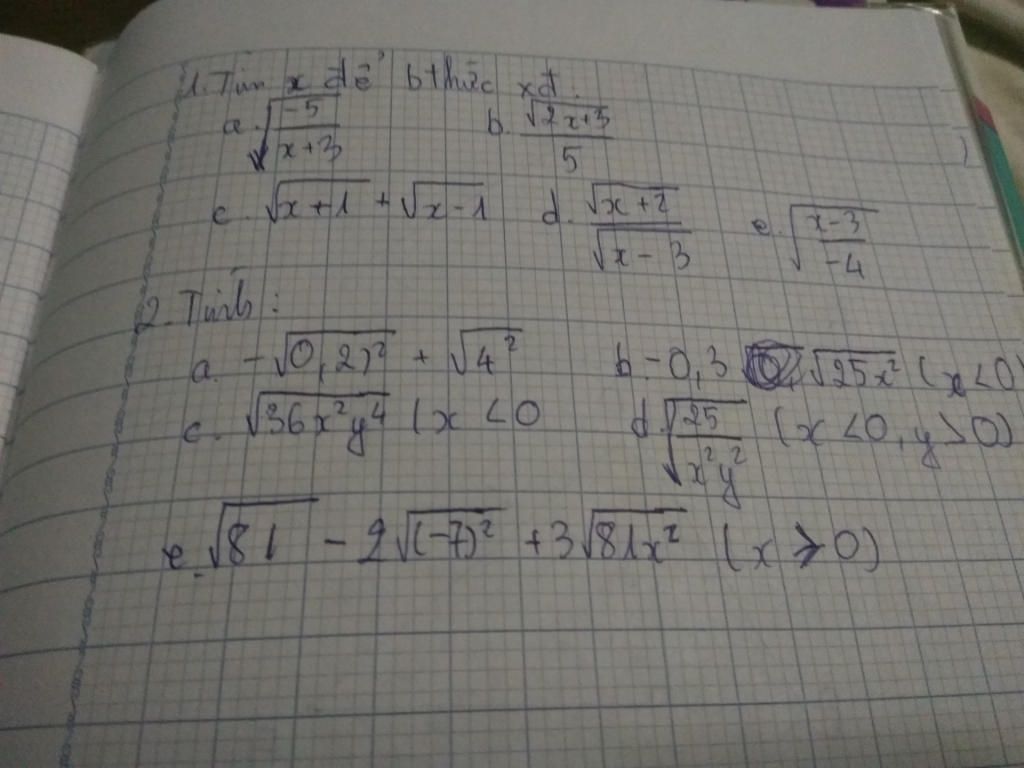 1. Tìm x để bthức xđ.
a. √(-5/(x+3)) b. √(2x+3)/5
c. √(x+1) + √(x-1) d. √(x+2)/√(x-3) e. √((x-3)/-4)
2. Tính:
a. -√(0,2)² + √4² b. -0,3 √25x² (x<0)
c. √36x²y⁴ (x <0 d. √(25/x²y²) (x<0, y>0)
e. √81 - 2√(-7)² + 3√81x² (x>0)